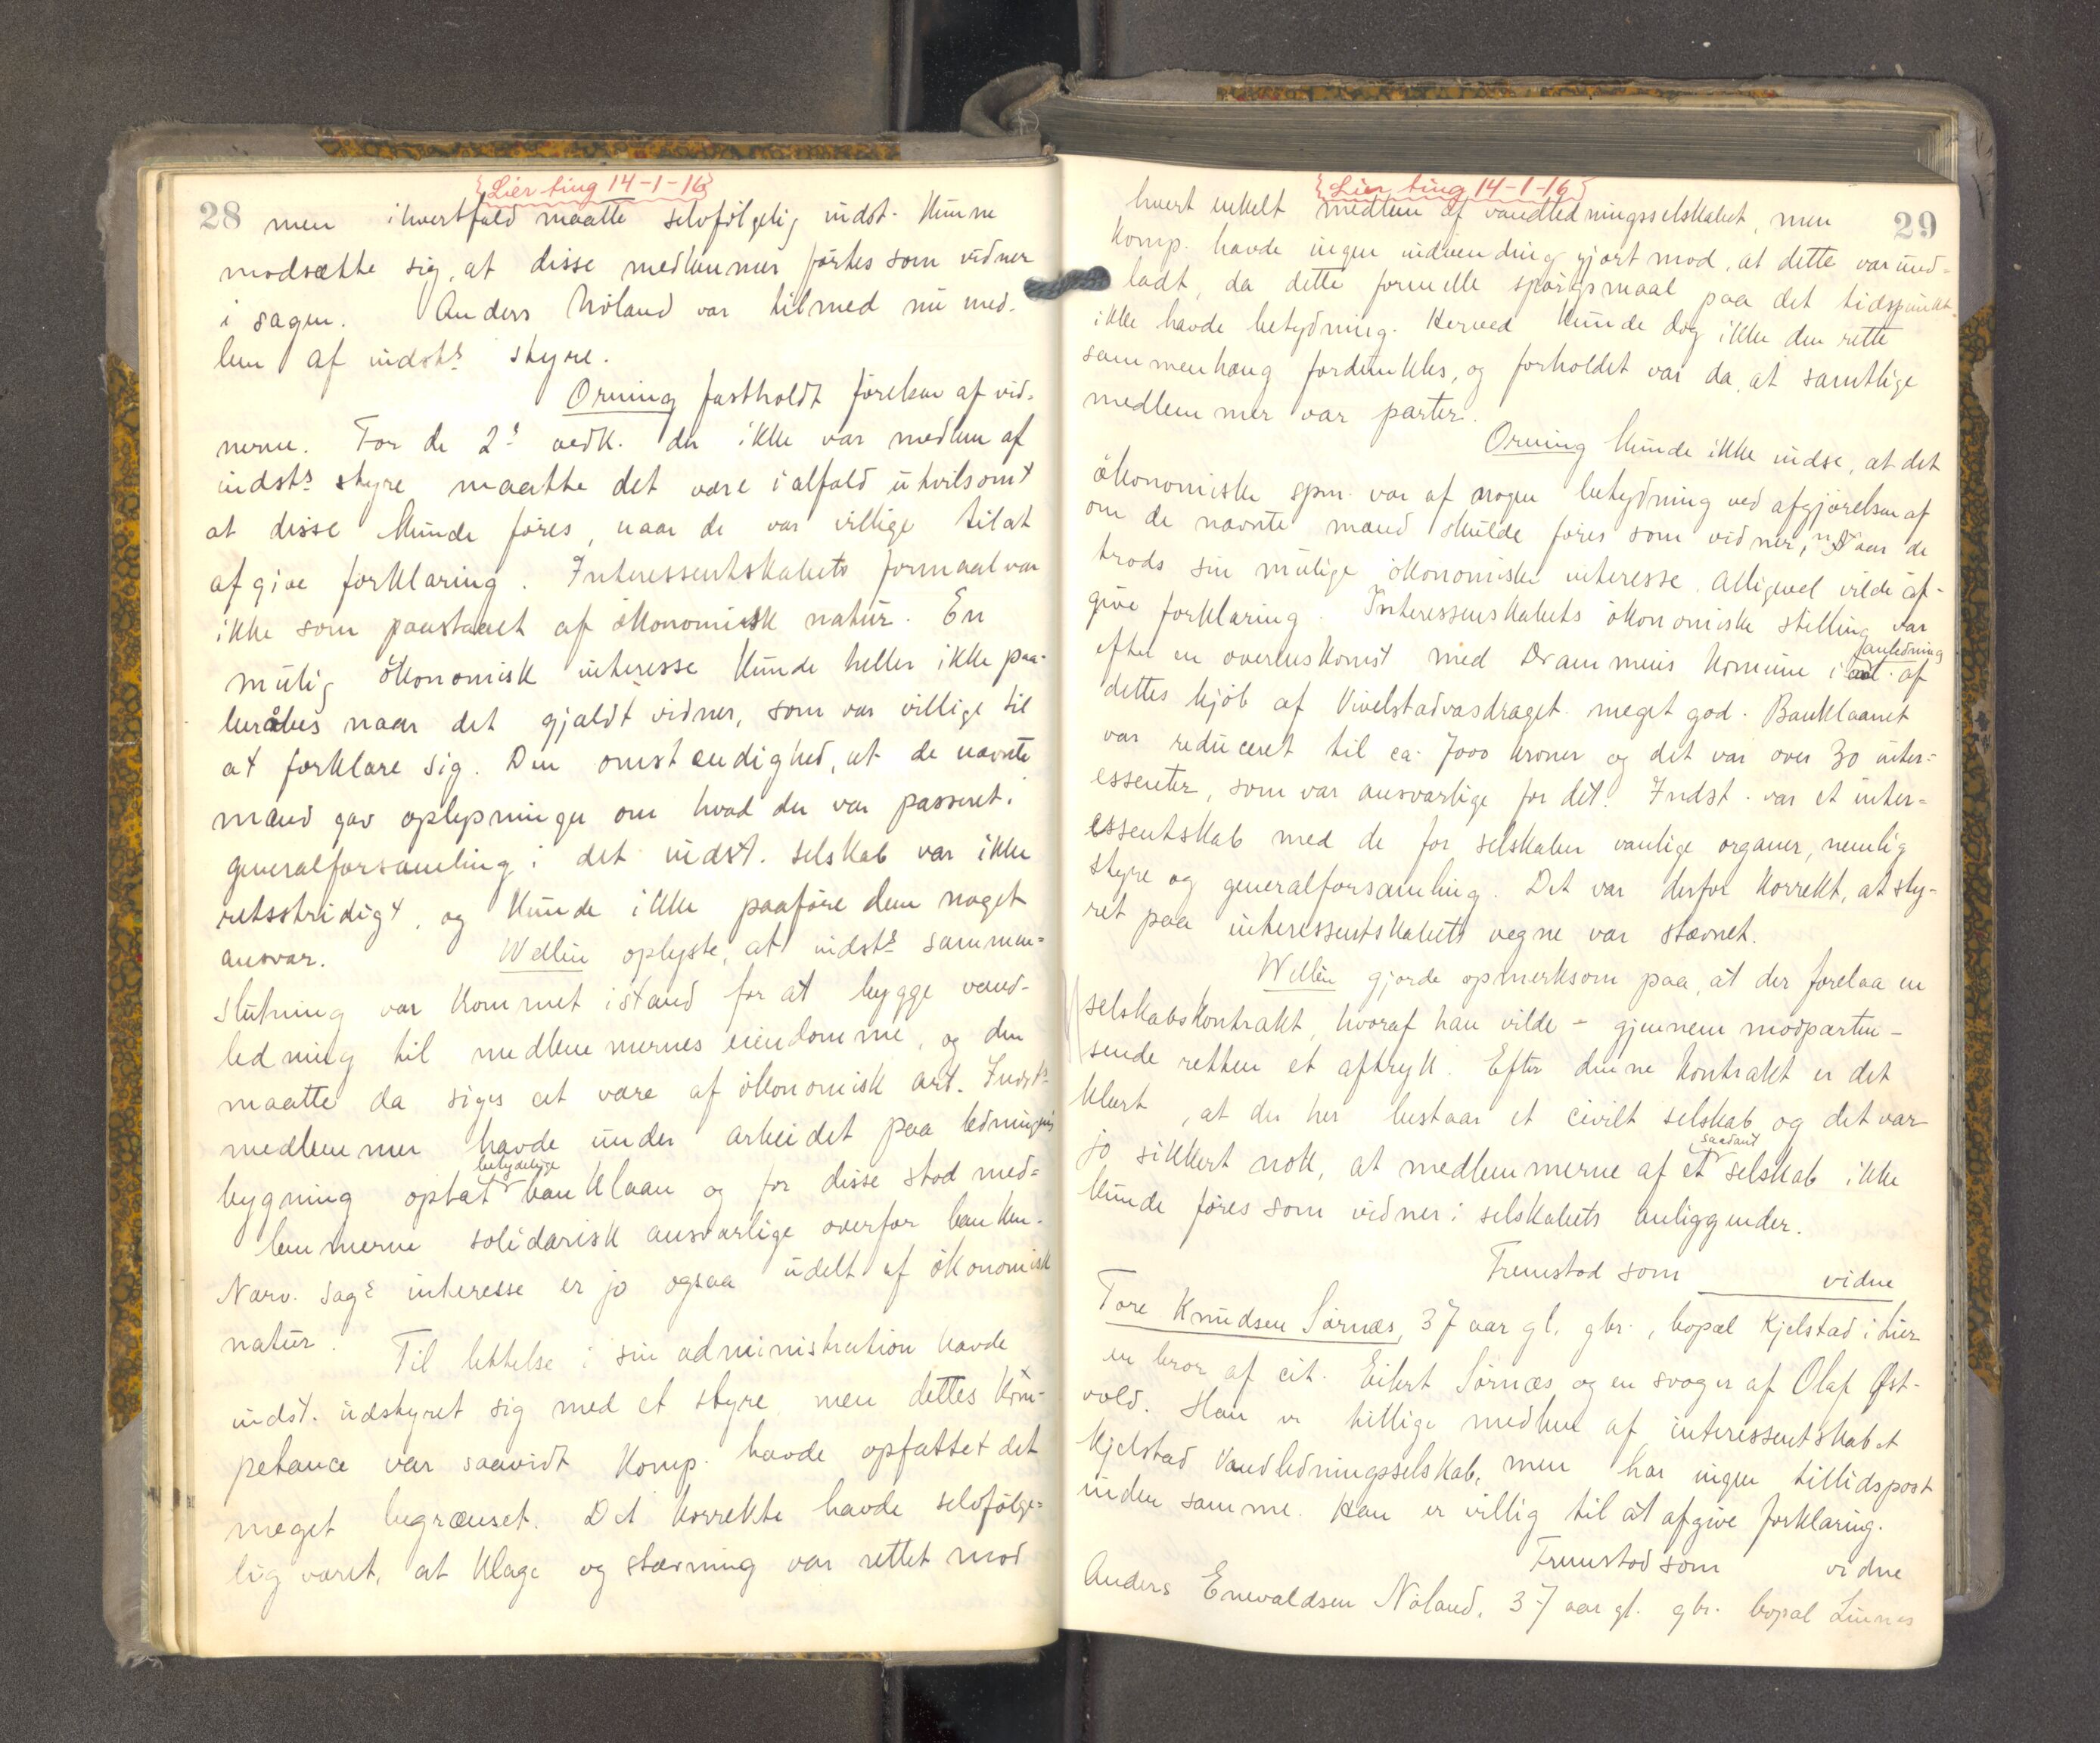 {Lier ting 14-1-16}
28
men ihvertfald maatte selvfölgelig indst. kunne
modsætte sig, at disse medlemmer förtes som vidner
i sagen. Anders Nöland var tilmed nu med-
lem af indsts. styre.
Orning fastholdt förelsen af vid-
nerne. For de 2s vedk. der ikke var medlem af
indsts styre maatte det være ialfald utvilsomt
at disse kunde föres, naar de var villige til at
afgive forklaring. Interessentskabets formaal var
ikke som paastaaet af ökonomisk natur. En
mulig ökonomisk interesse kunde heller ikke paa-
beråbes naar det gjaldt vidner, som var villige til
at forklare sig. Den omstændighed, at de nævnte
mænd gav oplysninger om hvad der var passeret i
generalforsamling i det indst. selskab var ikke
retsstridigt, og kunde ikke paaföre dem noget
ansvar. Wellin oplyste, at indsts sammen-
slutning var kommet istand for at bygge vand-
ledning til medlemmernes eiendomme, og den
maatte da siges at være af ökonomisk art. Indsts
medlemmer havde under arbeidet paa ledningens
bygning optat betydelige banklaan og for disse stod med-
lemmerne solidarisk ansvarlige overfor banken.
Nærv. sags interesse er jo ogsaa udelt af ökonomisk
natur. Til lettelse i sin administration havde
indst. udstyret sig med et styre, men dettes kom-
petance var saavidt komp. havde opfattet det
meget begrænset. Det korrekte havde selvfölge-
lig været, at klage og stævning var rettet mod
{Lier ting 14-1-16}
29
hvert enkelt medlem af vandledningsselskabet, men
komp. havde ingen indvending gjort mod, at dette var und-
ladt, da dette formelle spörgsmaal paa det tidspunkt
ikke havde betydning. Herved kunde dog ikke den rette
sammenhæng fordunkles, og forholdet var da, at samtlige
medlemmer var parter.
Orning kunde ikke indse, at det
ökonomiske spm. var af nogen betydning ved afgjörelsen af
om de nævnte mænd skulde föres som vidner, naar de
trods sin mulige ökonomiske interesse alligevel vilde af-
give forklaring. Interessenskabets ökonomiske stilling var
efter en overenskomst med Drammens komune i anledning af
dettes kjöb af Vivelstadvasdraget meget god. Banklaanet
var reduceret til ca. 7000 kroner og det var over 30 inter-
essenter, som var ansvarlige for det. Indst. var et inter-
essentskab med de for selskaber vanlige organer, nemlig
styre og generalforsamling. Det var derfor korrekt, at sty-
ret paa interessentskabets vegne var stævnet.
Wellin gjorde opmerksom paa, at der forelaa en
selskabskontrakt, hvoraf han vilde - gjennem modparten -
sende retten et aftryk. Efter denne kontrakt er det
klart, at der her bestaar et civilt selskab og det var
jo sikkert nok, at medlemmerne af et saadant selskab ikke
kunde föres som vidner i selskabets anliggender.
Fremstod som vidne
Tore Knudsen Sörnæs, 37 aar gl. gbr., bopæl Kjelstad i Lier
en bror af cit. Eilert Sörnæs og en svoger af Olaf Øst-
vold. Han er tillige medlem af interessentskabet
Kjelstad Vandledningsselskab, men har ingen tillidspost
inden samme. Han er villig til at afgive forklaring.
Fremstod som vidne
Anders Enevaldsen Nöland, 37 aar gl. gbr. bopæl Linnes